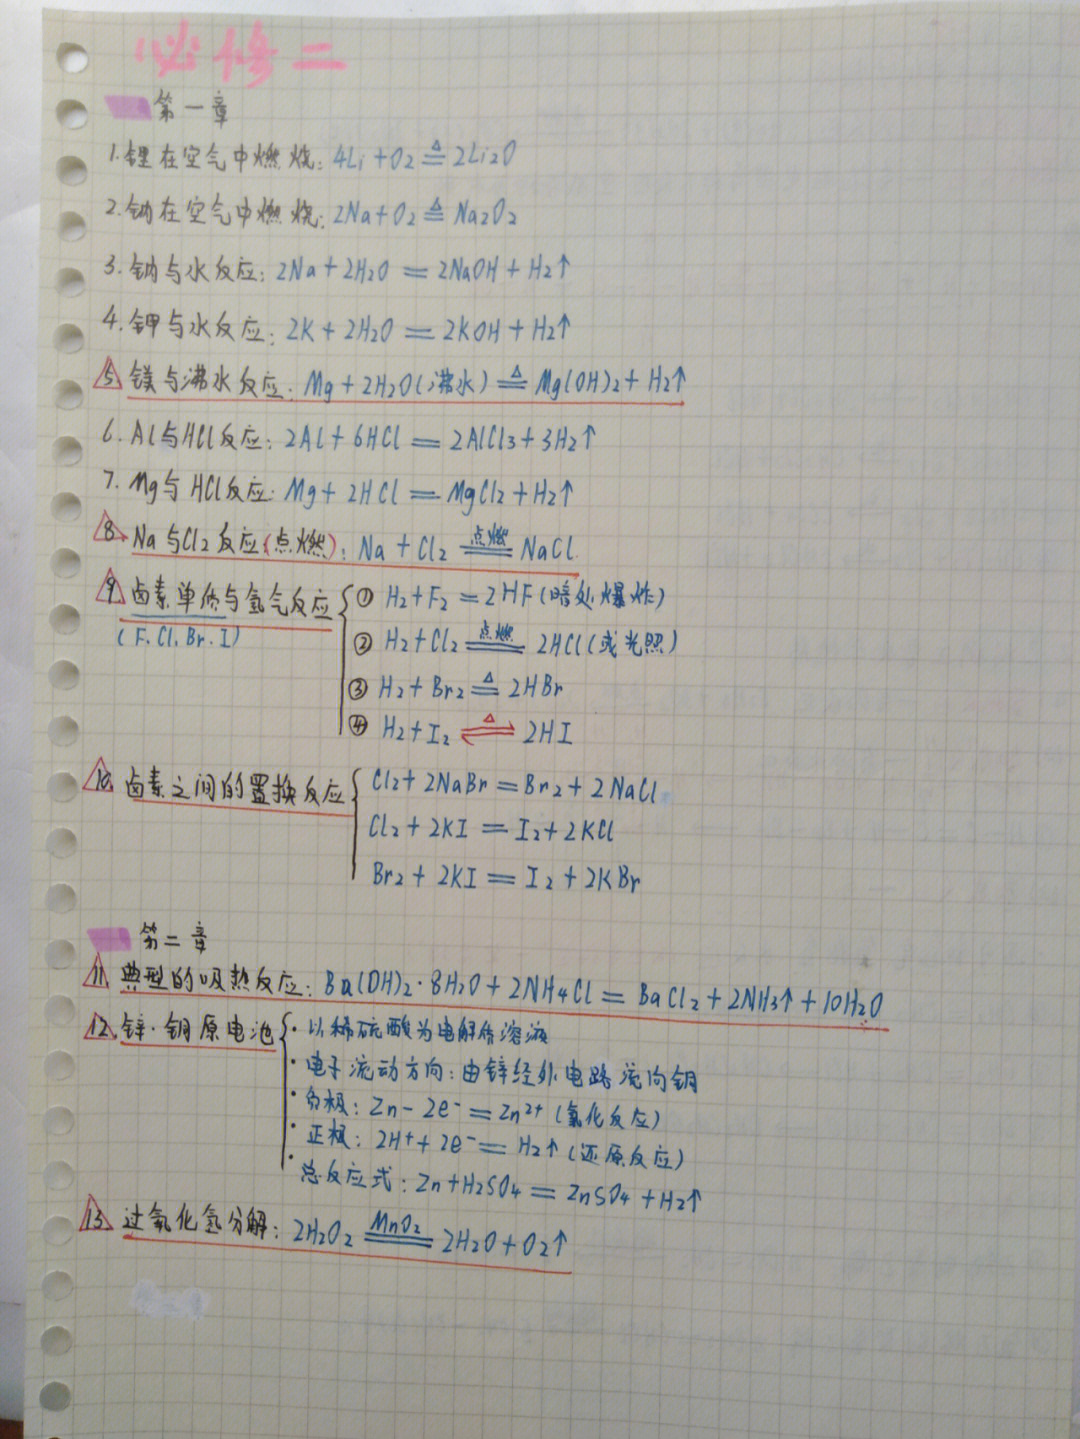 必修二
第一章
1.锂在空气中燃烧: 4Li+O₂ ≜ 2Li₂O
2.钠在空气中燃烧: 2Na+O₂ ≜ Na₂O₂
3.钠与水反应: 2Na+2H₂O = 2NaOH+H₂↑
4.钾与水反应: 2K+2H₂O = 2KOH+H₂↑
5.镁与沸水反应: Mg+2H₂O(沸水) ≜ Mg(OH)₂+H₂↑
6.Al与HCl反应: 2Al+6HCl = 2AlCl₃+3H₂↑
7.Mg与HCl反应: Mg+2HCl = MgCl₂+H₂↑
8.Na与Cl₂反应(点燃): Na+Cl₂ =点燃= NaCl
9.卤素单质与氢气反应 ① H₂+F₂ = 2HF(暗处爆炸)
(F.Cl.Br.I) ② H₂+Cl₂ =点燃= 2HCl(或光照)
③ H₂+Br₂ ≜ 2HBr
④ H₂+I₂ ⇌△ 2HI
10.卤素之间的置换反应 Cl₂+2NaBr = Br₂+2NaCl
Cl₂+2KI = I₂+2KCl
Br₂+2KI = I₂+2KBr
第二章
11.典型的吸热反应: Ba(OH)₂·8H₂O+2NH₄Cl = BaCl₂+2NH₃↑+10H₂O
12.锌·铜原电池 ·以稀硫酸为电解质溶液
·电子流动方向:由锌经外电路流向铜
·负极: Zn-2e⁻ = Zn²⁺(氧化反应)
·正极: 2H⁺+2e⁻ = H₂↑(还原反应)
·总反应式: Zn+H₂SO₄ = ZnSO₄+H₂↑
13.过氧化氢分解: 2H₂O₂ =MnO₂= 2H₂O+O₂↑